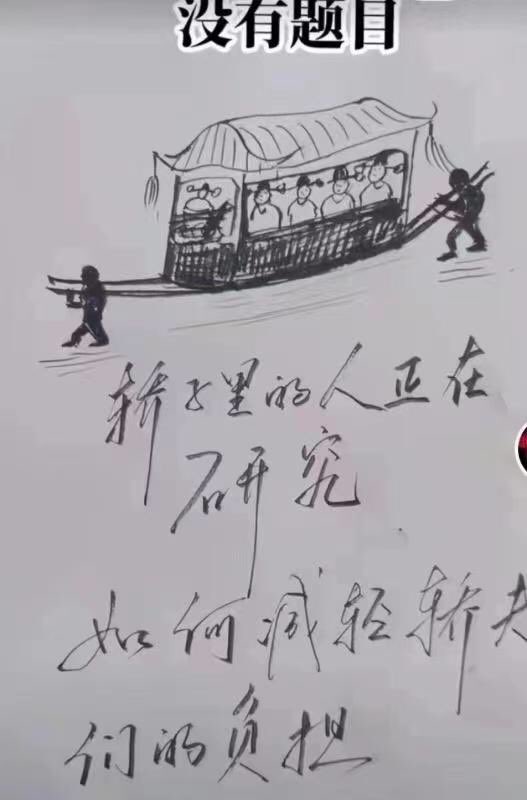 没有题目
轿子里的人正在
研究
如何减轻轿夫
们的负担